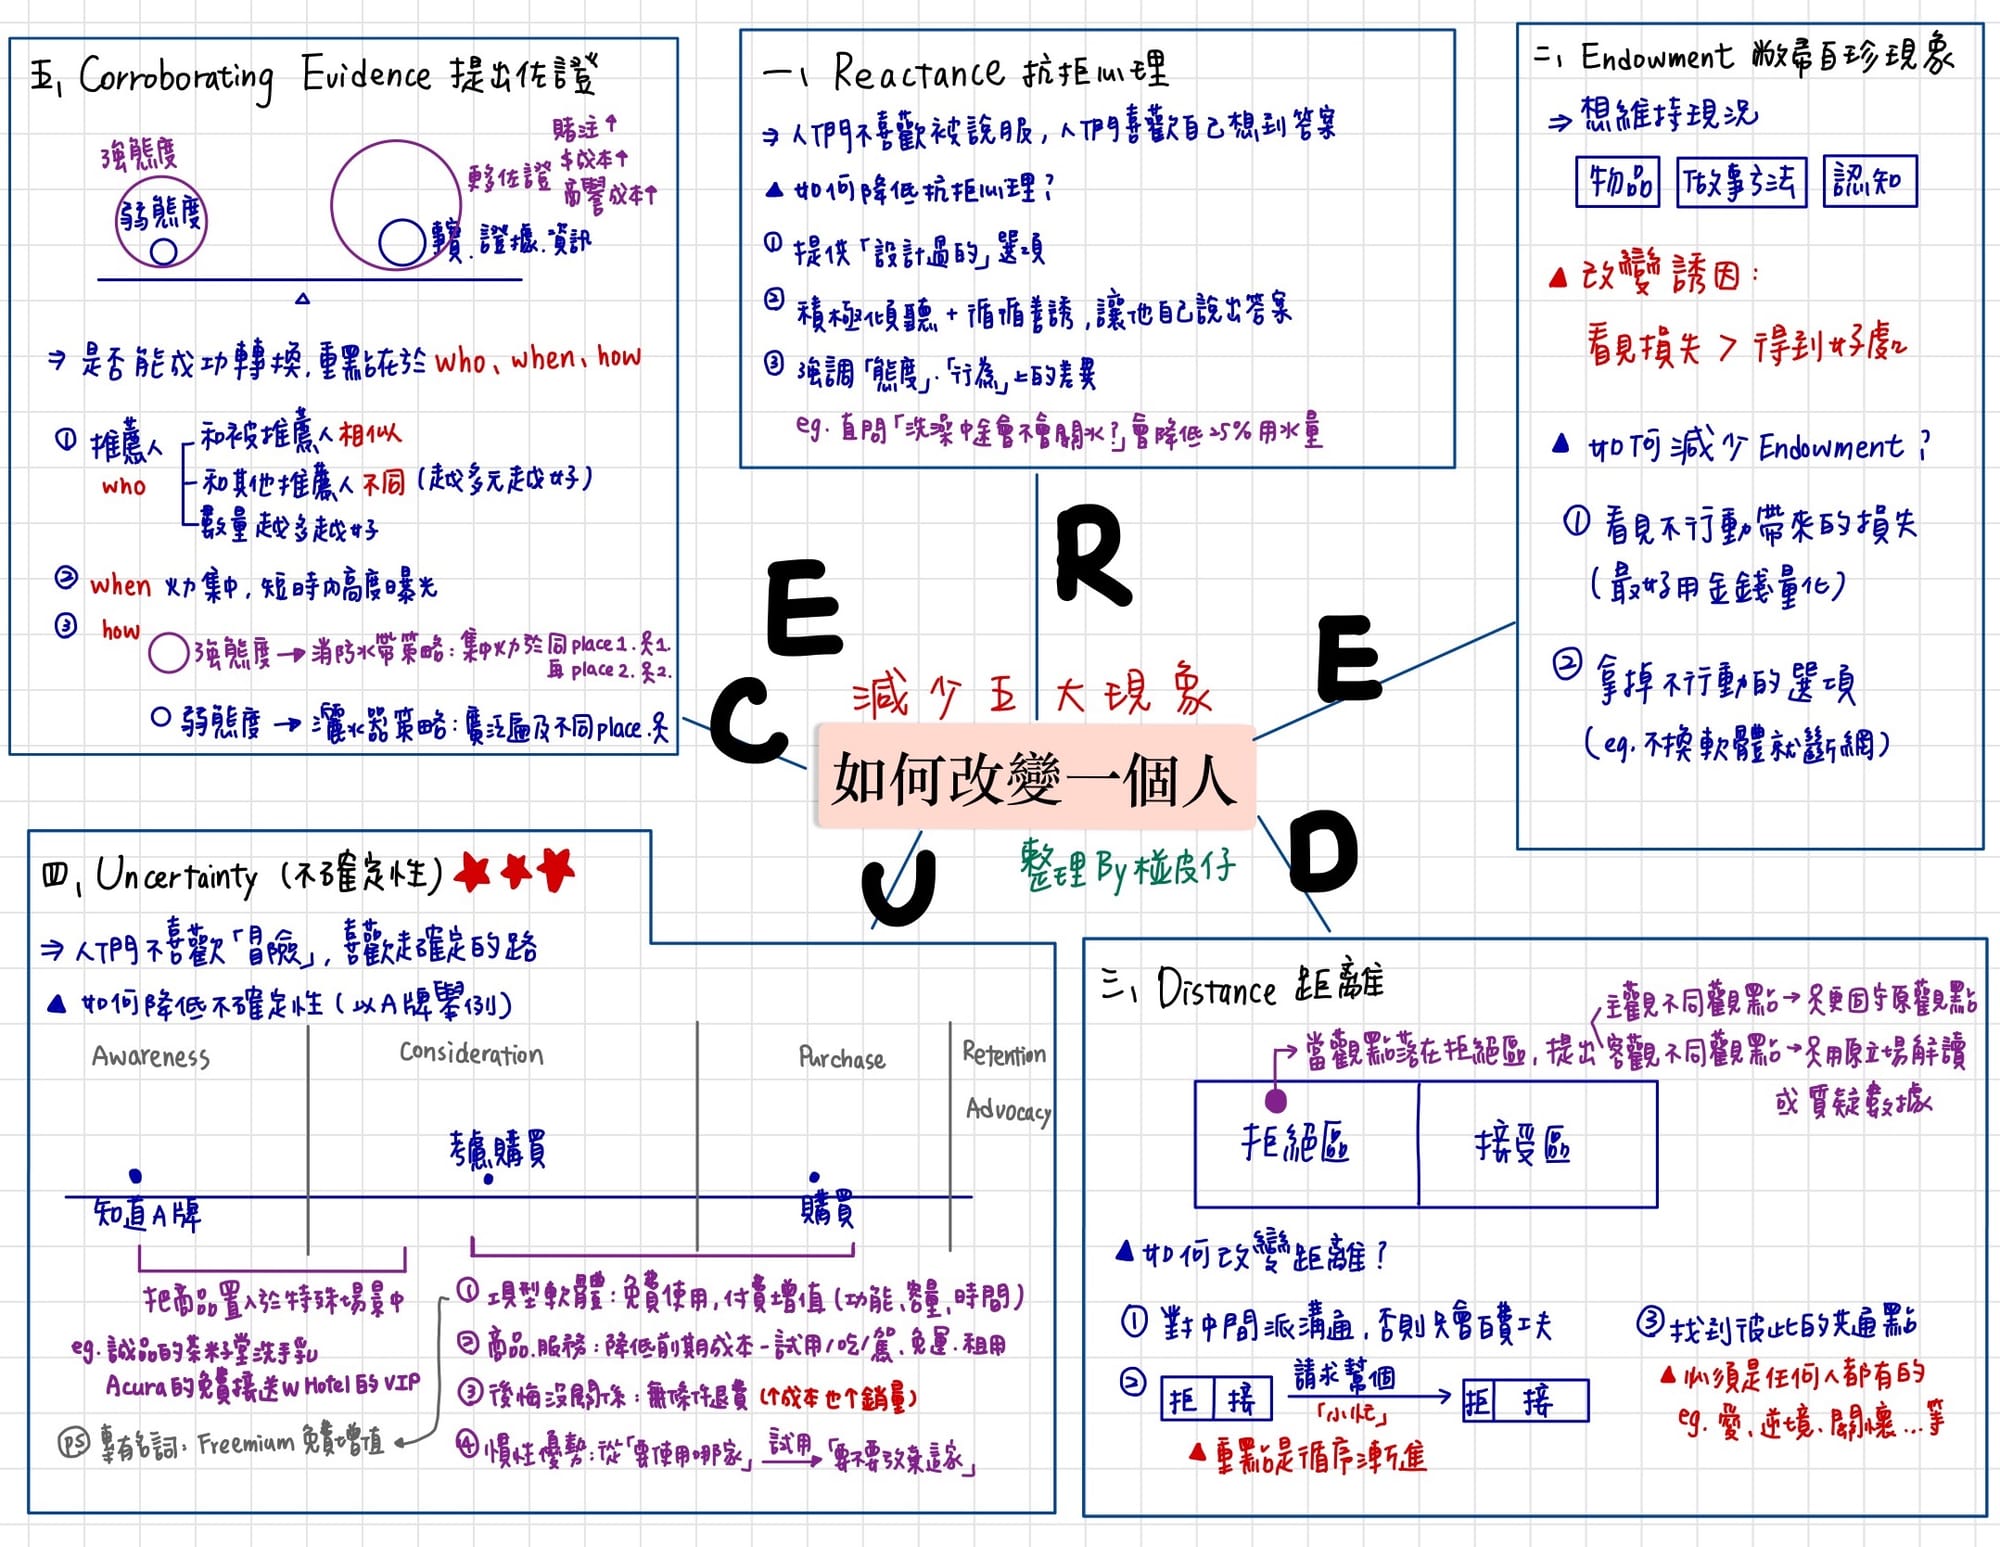 減少五大現象
如何改變一個人
整理By椪皮仔
R
E
D
U
C
E
一、Reactance 抗拒心理
⇒ 人們不喜歡被說服,人們喜歡自己想到答案
▲ 如何降低抗拒心理?
① 提供「設計過的」選項
② 積極傾聽 + 循循善誘,讓他自己說出答案
③ 強調「態度」.「行為」上的差異
eg. 直問「洗澡中途會不會關水?」會降低25%用水量
二、Endowment 敝帚自珍現象
⇒ 想維持現況
物品 做事方法 認知
▲ 改變誘因:
看見損失 > 得到好處
▲ 如何減少Endowment?
① 看見不行動帶來的損失
(最好用金錢量化)
② 拿掉不行動的選項
(eg. 不換軟體就斷網)
三、Distance 距離
當觀點落在拒絕區,提出
主觀不同觀點→只更固守原觀點
客觀不同觀點→只用原立場解讀
或質疑數據
拒絕區 接受區
▲ 如何改變距離?
① 對中間派溝通,否則只會白費工夫
② 拒 接 請求幫個「小忙」 → 拒 接
▲ 重點是循序漸進
③ 找到彼此的共通點
▲ 必須是任何人都有的
eg. 愛、逆境、關懷...等
四、Uncertainty (不確定性) ★★★
⇒ 人們不喜歡「冒險」,喜歡走確定的路
▲ 如何降低不確定性 (以A牌舉例)
Awareness Consideration Purchase Retention
Advocacy
知道A牌 考慮購買 購買
把商品置入於特殊場景中
eg. 誠品的茶籽堂洗手乳
Acura的免費接送W Hotel的VIP
ps 專有名詞: Freemium 免費增值
① 工具型軟體:免費使用,付費增值 (功能、容量、時間)
② 商品.服務:降低前期成本-試用/吃/駕、免運.租用
③ 後悔沒關係:無條件退費 (↑成本也↑銷量)
④ 慣性優勢:從「要使用哪家」 試用→ 「要不要放棄這家」
五、Corroborating Evidence 提出佐證
強態度
弱態度
更多佐證
賭注↑
$成本↑
商譽成本↑
事實.證據.資訊
⇒ 是否能成功轉換,重點在於who、when、how
① 推薦人 who
和被推薦人相似
和其他推薦人不同 (越多元越好)
數量越多越好
② when 火力集中,短時內高度曝光
③ how
強態度→消防水帶策略:集中火力於同place1.民1.
再place2.民2.
弱態度→灑水器策略:廣泛遍及不同place.民